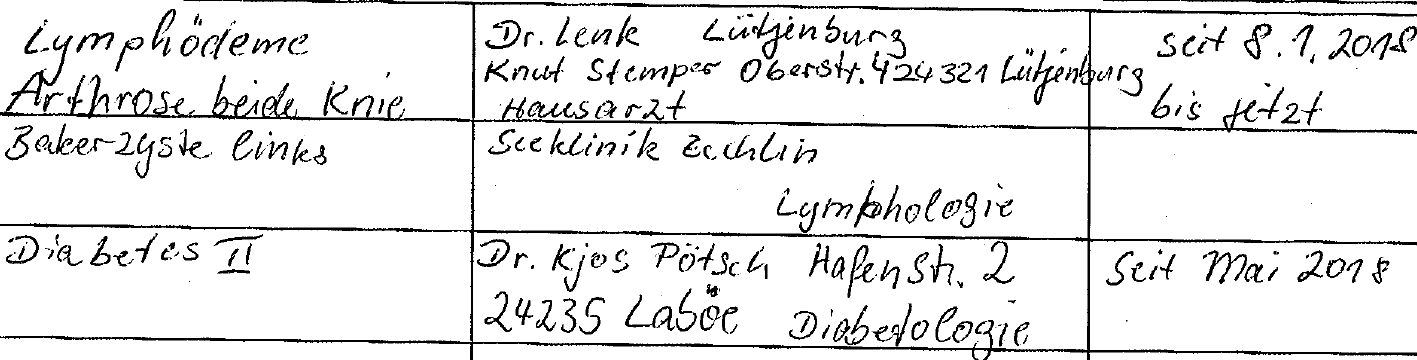 Lymphödeme
Arthrose beide Knie
Dr. Lenk Lütjenburg
Knut Stemper Oberstr. 4 24321 Lütjenburg
Hausarzt
seit 8.1.2018
bis jetzt
Bakerzyste links
Seeklinik Zechlin
Lymphologie
Diabetes II
Dr. Kjos Pötsch Hafenstr. 2
24235 Laböe Diabetologie
Seit Mai 2018